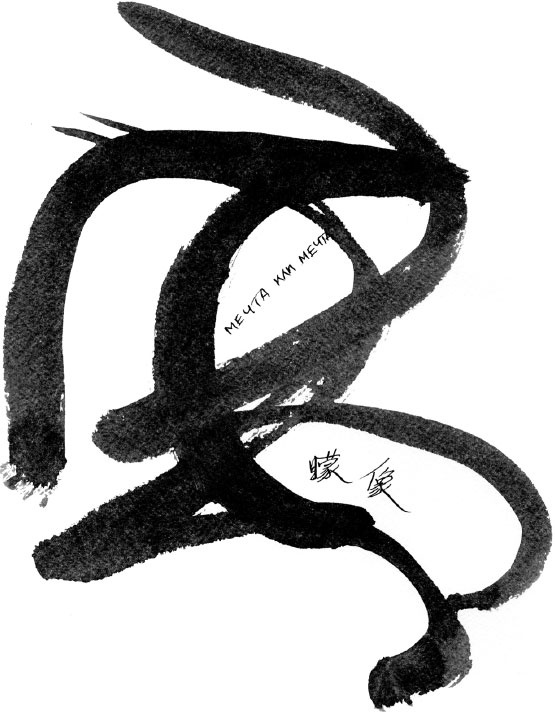 МЕЧТА КЛИ МЕЧТА
矇像